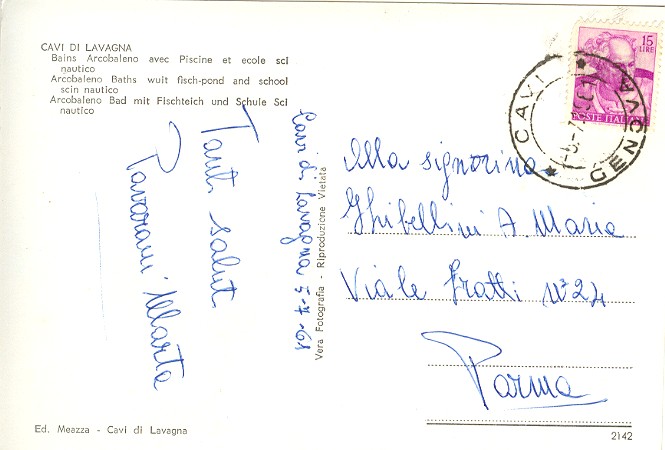 CAVI DI LAVAGNA
Bains Arcobaleno avec Piscine et ecole sci
nautico
Arcobaleno Baths wuit fisch-pond and school
scin nautico
Arcobaleno Bad mit Fischteich und Schule Sci
nautico
15
LIRE
POSTE ITALIANE
CAVI
GENOVA
Cavi di Lavagna 5-7-61
Tanti saluti
Pavarani Marta
Vera Fotografia - Riproduzione Vietata
Alla signorina
Ghibellini A. Maria
Viale Fratti n° 24
Parma
Ed. Meazza - Cavi di Lavagna
2142